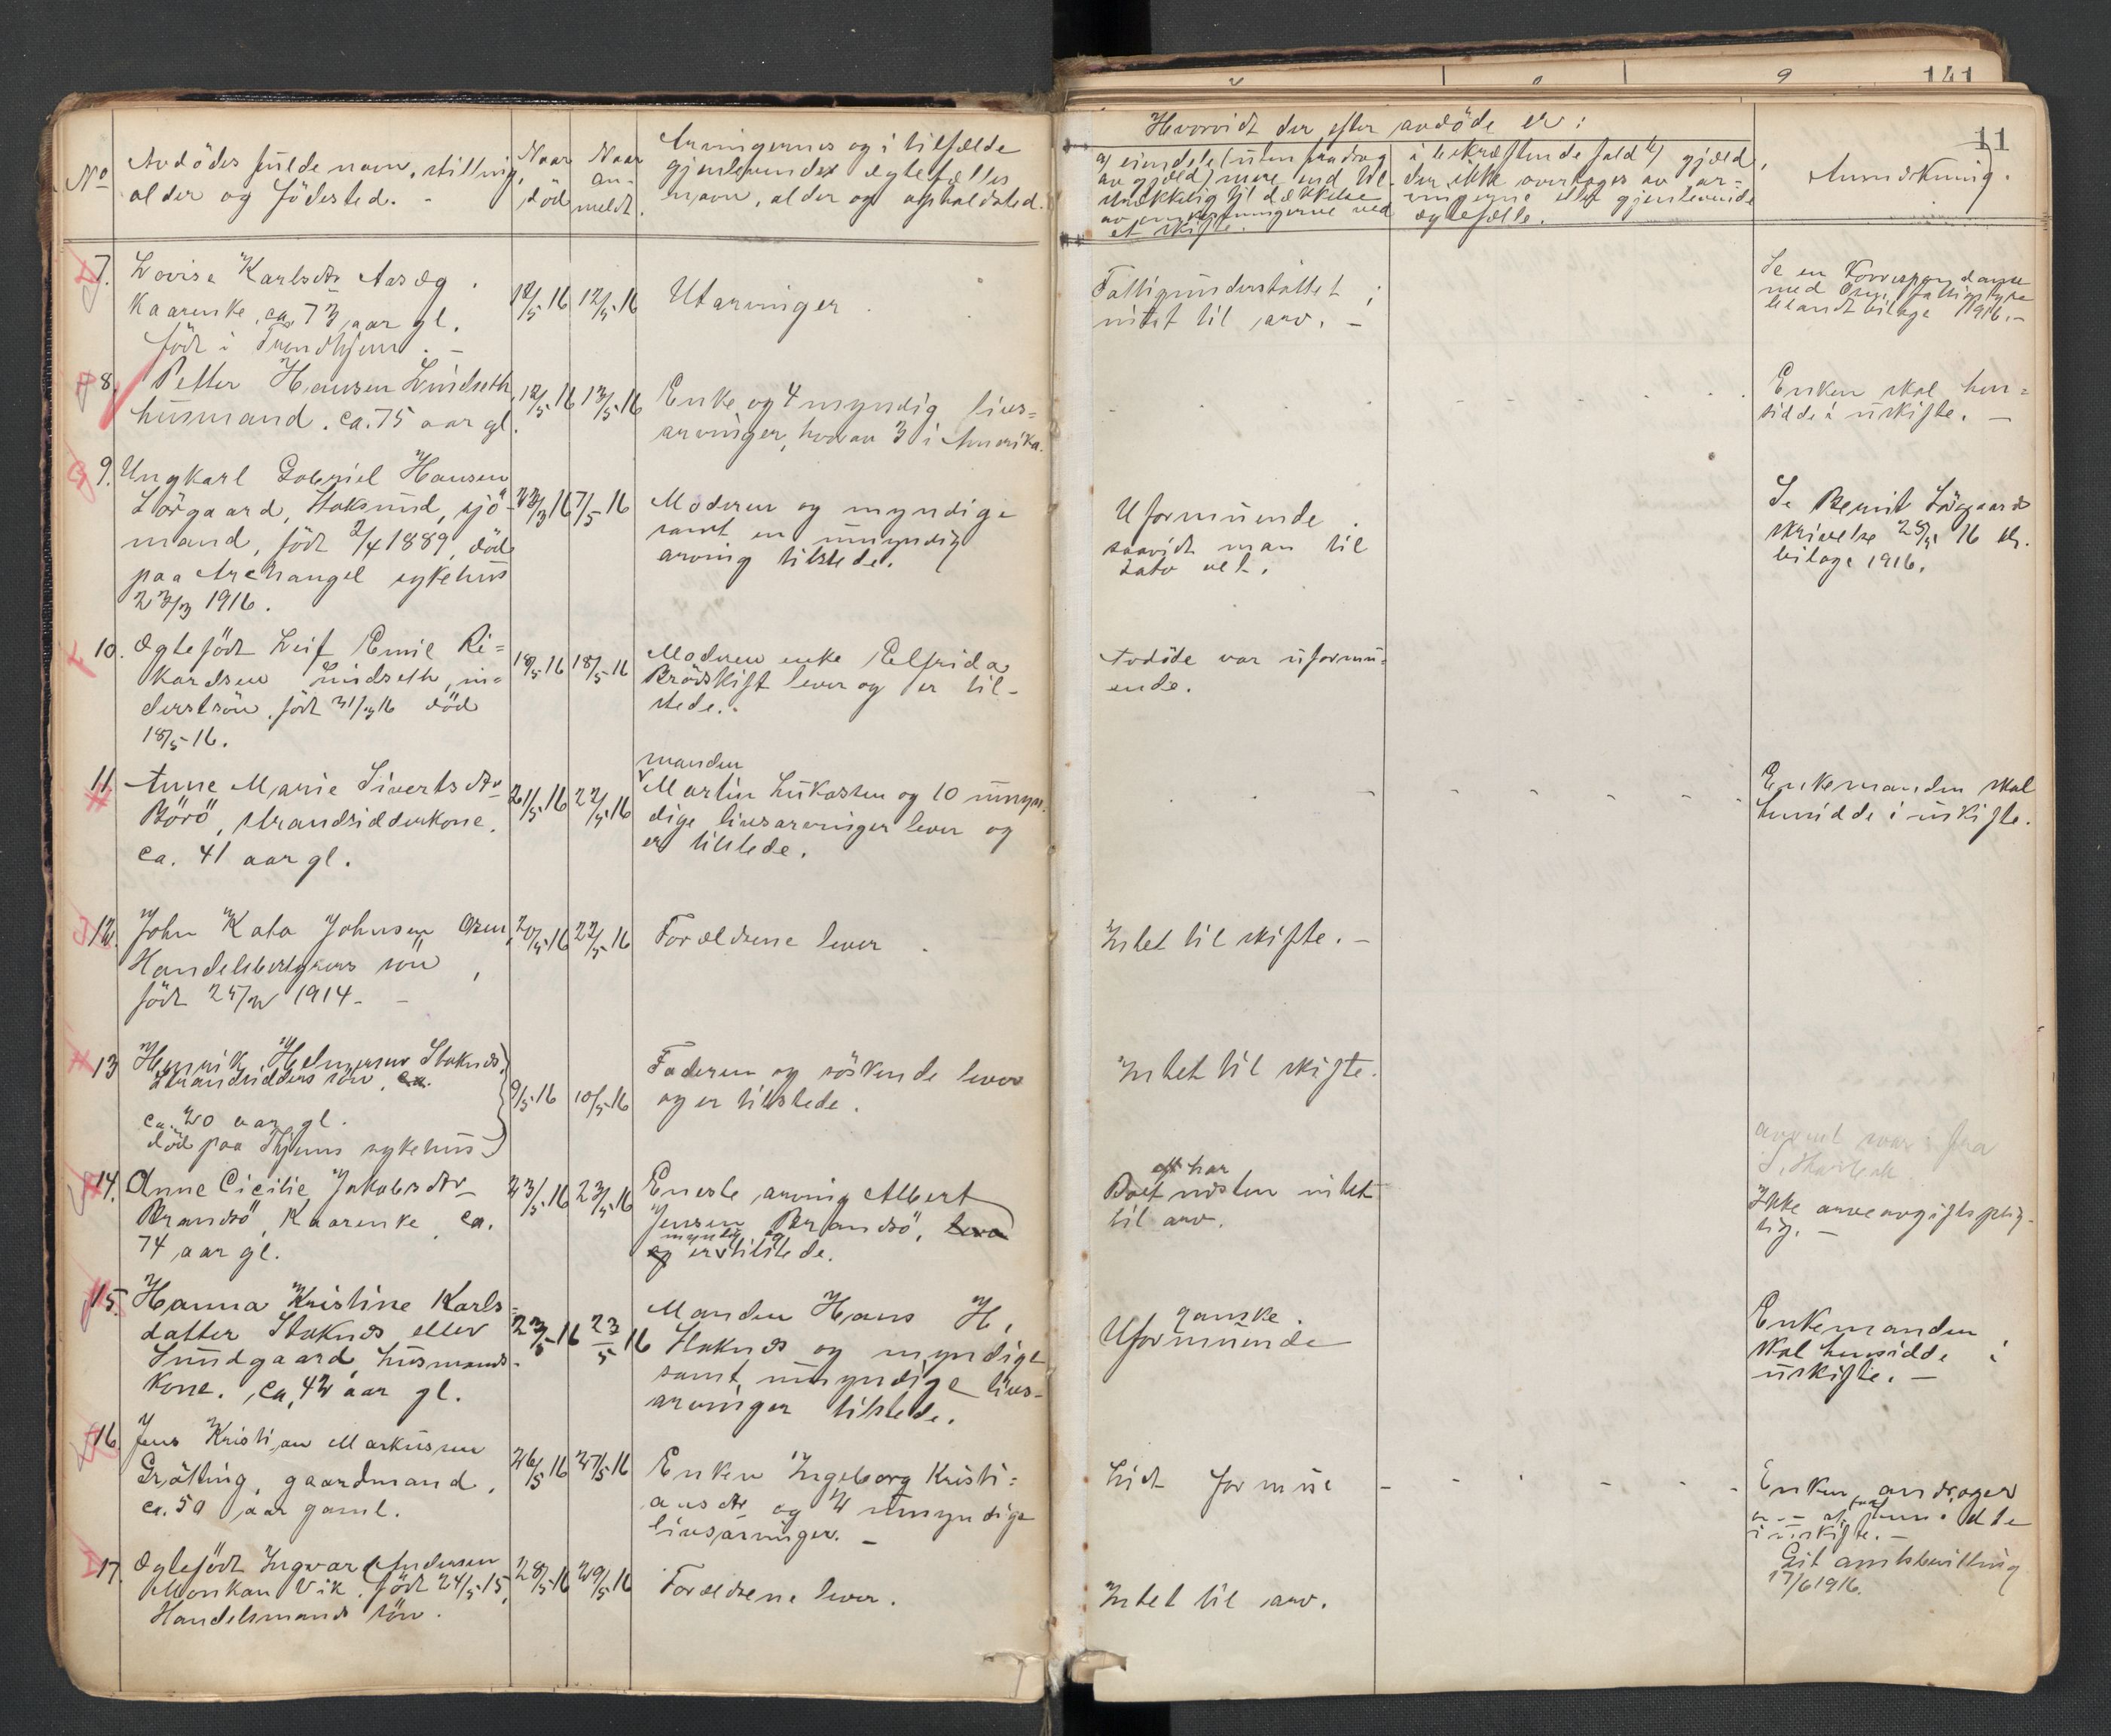 141
11
No
Avdödes fulde navn, stilling,
alder og födested. -
Naar
död
Naar
an-
meldt.
Arvingernes og i tilfælde
gjenlevendes ægtefælles
navn, alder og opholdsted.
Hvorvidt der efter avdöde er:
a) eiendele (uten fradrag
av gjæld) mere end til-
strækkelig til dækkelse
av omkostningerne ved
et skifte.
i bekræftende fald b) gjæld,
der ikke overtages av ar-
vingerne eller gjenlevende
ægtefælle.
Anmerkning.
7.
Lovise Karlsdtr Aasæg
Kaarenke, ca. 73 aar gl.
födt i Trondhjem. -
12/5 16
12/5 16
Utarvinger.
Fattigunderstöttet;
intet til arv. -
Se en Korrespondanse
med fattigstyre
blandt bilage 1916. -
8.
Petter Hansen Lindseth
husmand. ca. 75 aar gl.
12/5 16
13/5 16
Enke og 4 myndig livs-
arvinger, hvorav 3 i Amerika.
Enken skal hen-
sidde i uskifte. -
9.
Ungkarl Gabriel Hansen
Lörgaard, Stoksund, sjö-
mand, födt 2/4 1889, död
paa Archangel sykehus
23/3 1916.
23/3 16
7/5 16
Moderen og myndige
samt en umyndig
arving tilstede.
Uformuende
saavidt man til
dato vet.
Se Bernit Lörgaards
skrivelse 28/5 16 bl.
bilage 1916.
10.
Ægtefödt Leif Emil Ri-
kardsen Lindseth, in-
derstsön, födt 31/3 16 död
18/5 - 16.
18/5 16
18/5 16
Moderen enke Elfrida
Brödskift lever og er til-
stede. -
Avdöde var uformu-
ende.
11.
Anne Marie Sivertsdtr
Börö, strandsidderkone,
ca. 41 aar gl.
21/5 16
22/5 16
manden
Martin Lukassen og 10 umyn-
dige livsarvinger lever og
er tilstede.
Enkemanden skal
hensidde i uskifte.
12.
John Kato Johnsen Osen,
Handelsbestyrers sön,
födt 25/2 1914. -
20/5 16
22/5 16
Forældrene lever.
Intet til skifte. -
13
Henrik Helmersen Stoknes,
Strandsidders sön, ca.
ca. 20 aar gl.
död paa Thjems sykehus
9/5 16
10/5 16
Faderen og söskende lever
og er tilstede.
Intet til skifte.
14.
Anne Cicilie Jakobsdtr
Brandsö, Kaarenke, ca.
74 aar gl.
23/5 16
23/5 16
Eneste arving Albert
Jensen Brandsö, lever
myndig og
og er tilstede.
har
Boet næsten intet
til arv.
svar fra
Ikke arveavgiftsplig-
tig. -
15.
Hanna Kristine Karls-
datter Stoknes eller
Sundgaard, husmands-
kone. ca. 42 aar gl.
23/5 16
23/5 16
Manden Hans H.
Stoknes og myndige
samt umyndige livs-
arvinger tilstede.
ganske
Uformuende
Enkemanden
skal hensidde i
uskifte. -
16.
Jens Kristian Markussen
Grötting, gaardmand,
ca. 50 aar gaml.
26/5 16
27/5 16
Enken Ingeborg Kristi-
ansdtr og 4 umyndige
livsarvinger. -
Lidt formue
Enken andrager
om at hensidde
i uskifte. -
Git amtsbevilling
17/6 1916.
17.
Ægtefödt Ingvar Andersen
Monkan Vik, födt 24/5 15,
Handelsmands sön.
28/5 16
29/5 16
Forældrene lever.
Intet til arv.